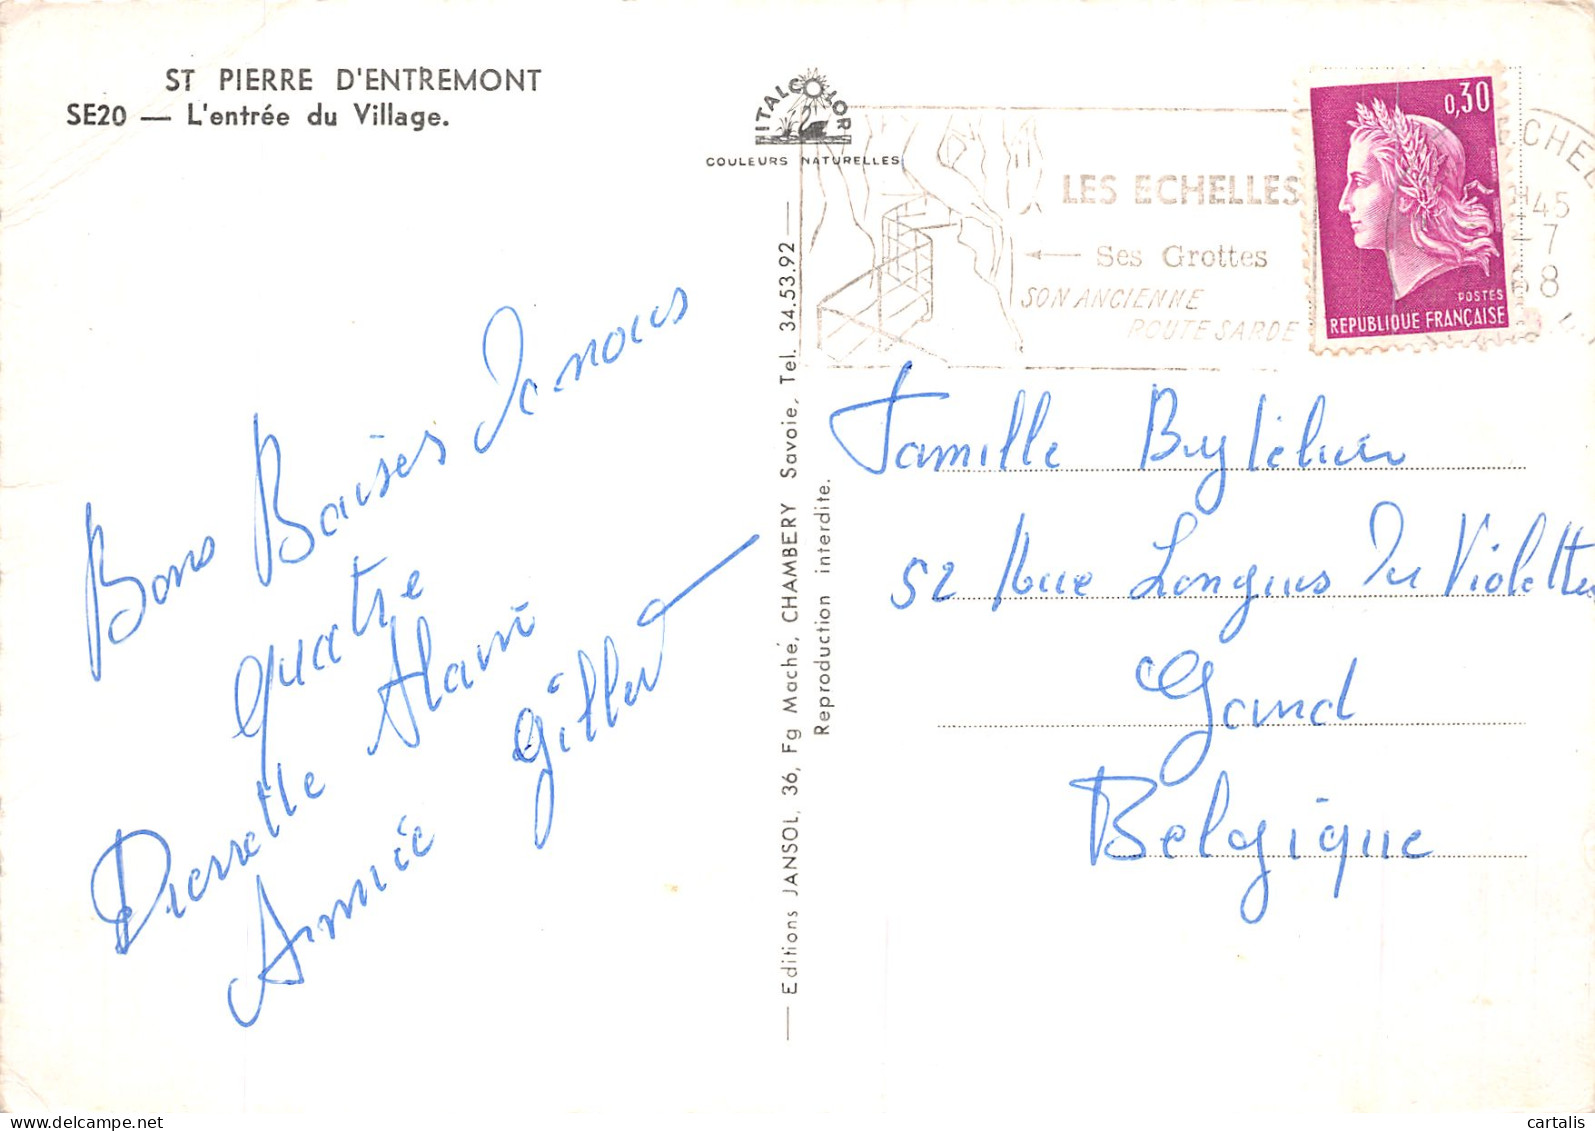 ST PIERRE D'ENTREMONT
SE20 — L'entrée du Village.
ITALCOLOR
COULEURS NATURELLES
LES ECHELLES
Ses Grottes
SON ANCIENNE
ROUTE SARDE
0,30
POSTES
REPUBLIQUE FRANÇAISE
45
-7
68
Bons Baisers de nous
quatre
Pierrette Alain
Annie Gilbert
Editions JANSOL, 36, Fg Maché, CHAMBERY Savoie, Tel. 34.53.92
Reproduction interdite.
Famille
52 Rue Longues Des Violettes
Gand
Belgique
cartalis
delcampe.net